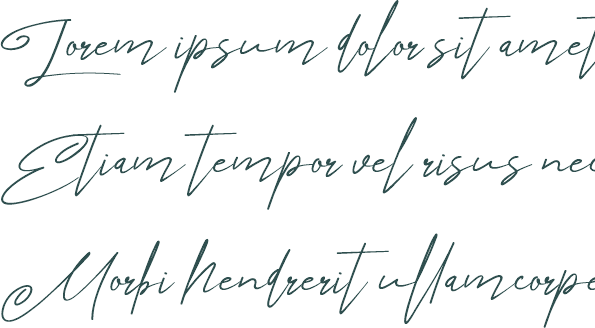 Lorem ipsum dolor sit amet
Etiam tempor vel risus neu
Morbi hendrerit ullamcorpe